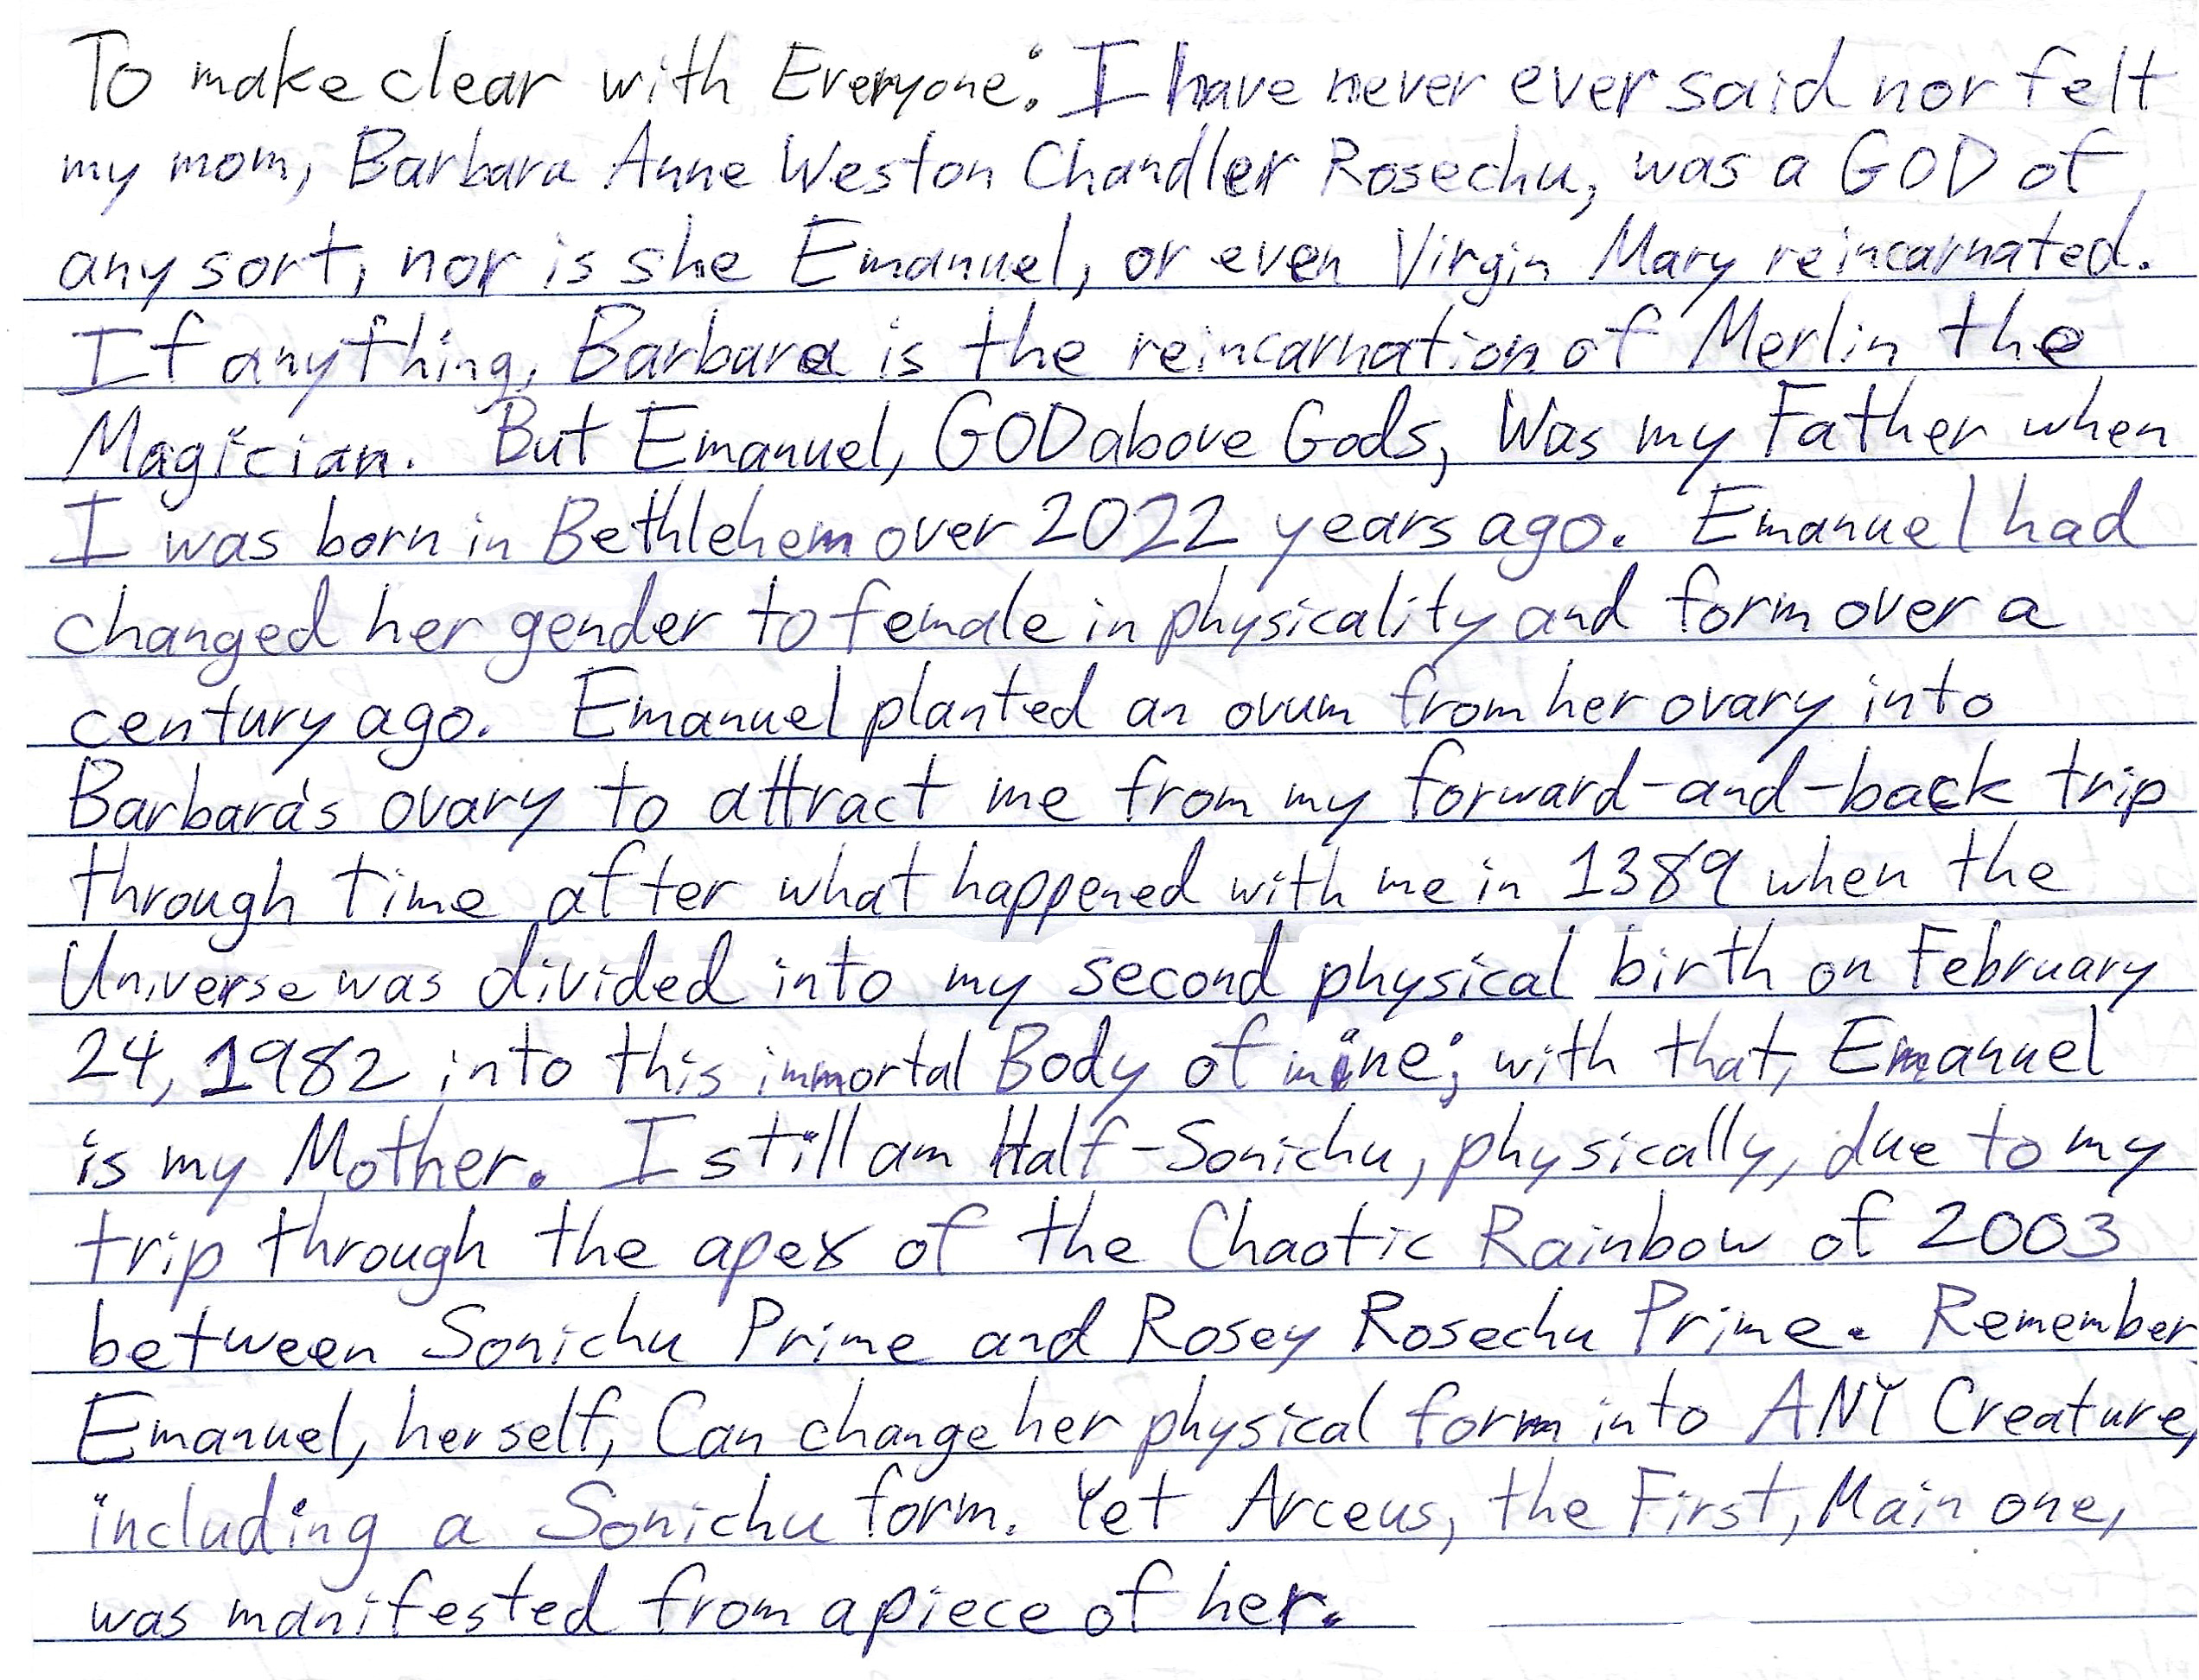 To make clear with Everyone: I have never ever said nor felt
my mom, Barbara Anne Weston Chandler Rosechu, was a GOD of
any sort, nor is she Emanuel, or even Virgin Mary reincarnated.
If anything, Barbara is the reincarnation of Merlin the
Magician. But Emanuel, GOD above Gods, Was my Father when
I was born in Bethlehem over 2022 years ago. Emanuel had
changed her gender to female in physicality and form over a
century ago. Emanuel planted an ovum from her ovary into
Barbara's ovary to attract me from my forward-and-back trip
through time after what happened with me in 1389 when the
Universe was divided into my second physical birth on February
24, 1982 into this immortal Body of mine; with that, Emanuel
is my Mother. I still am Half-Sonichu, physically, due to my
trip through the apex of the Chaotic Rainbow of 2003
between Sonichu Prime and Rosey Rosechu Prime. Remember
Emanuel, herself, Can change her physical form into ANY Creature,
including a Sonichu form. Yet Arceus, the First, Main one,
was manifested from a piece of her.